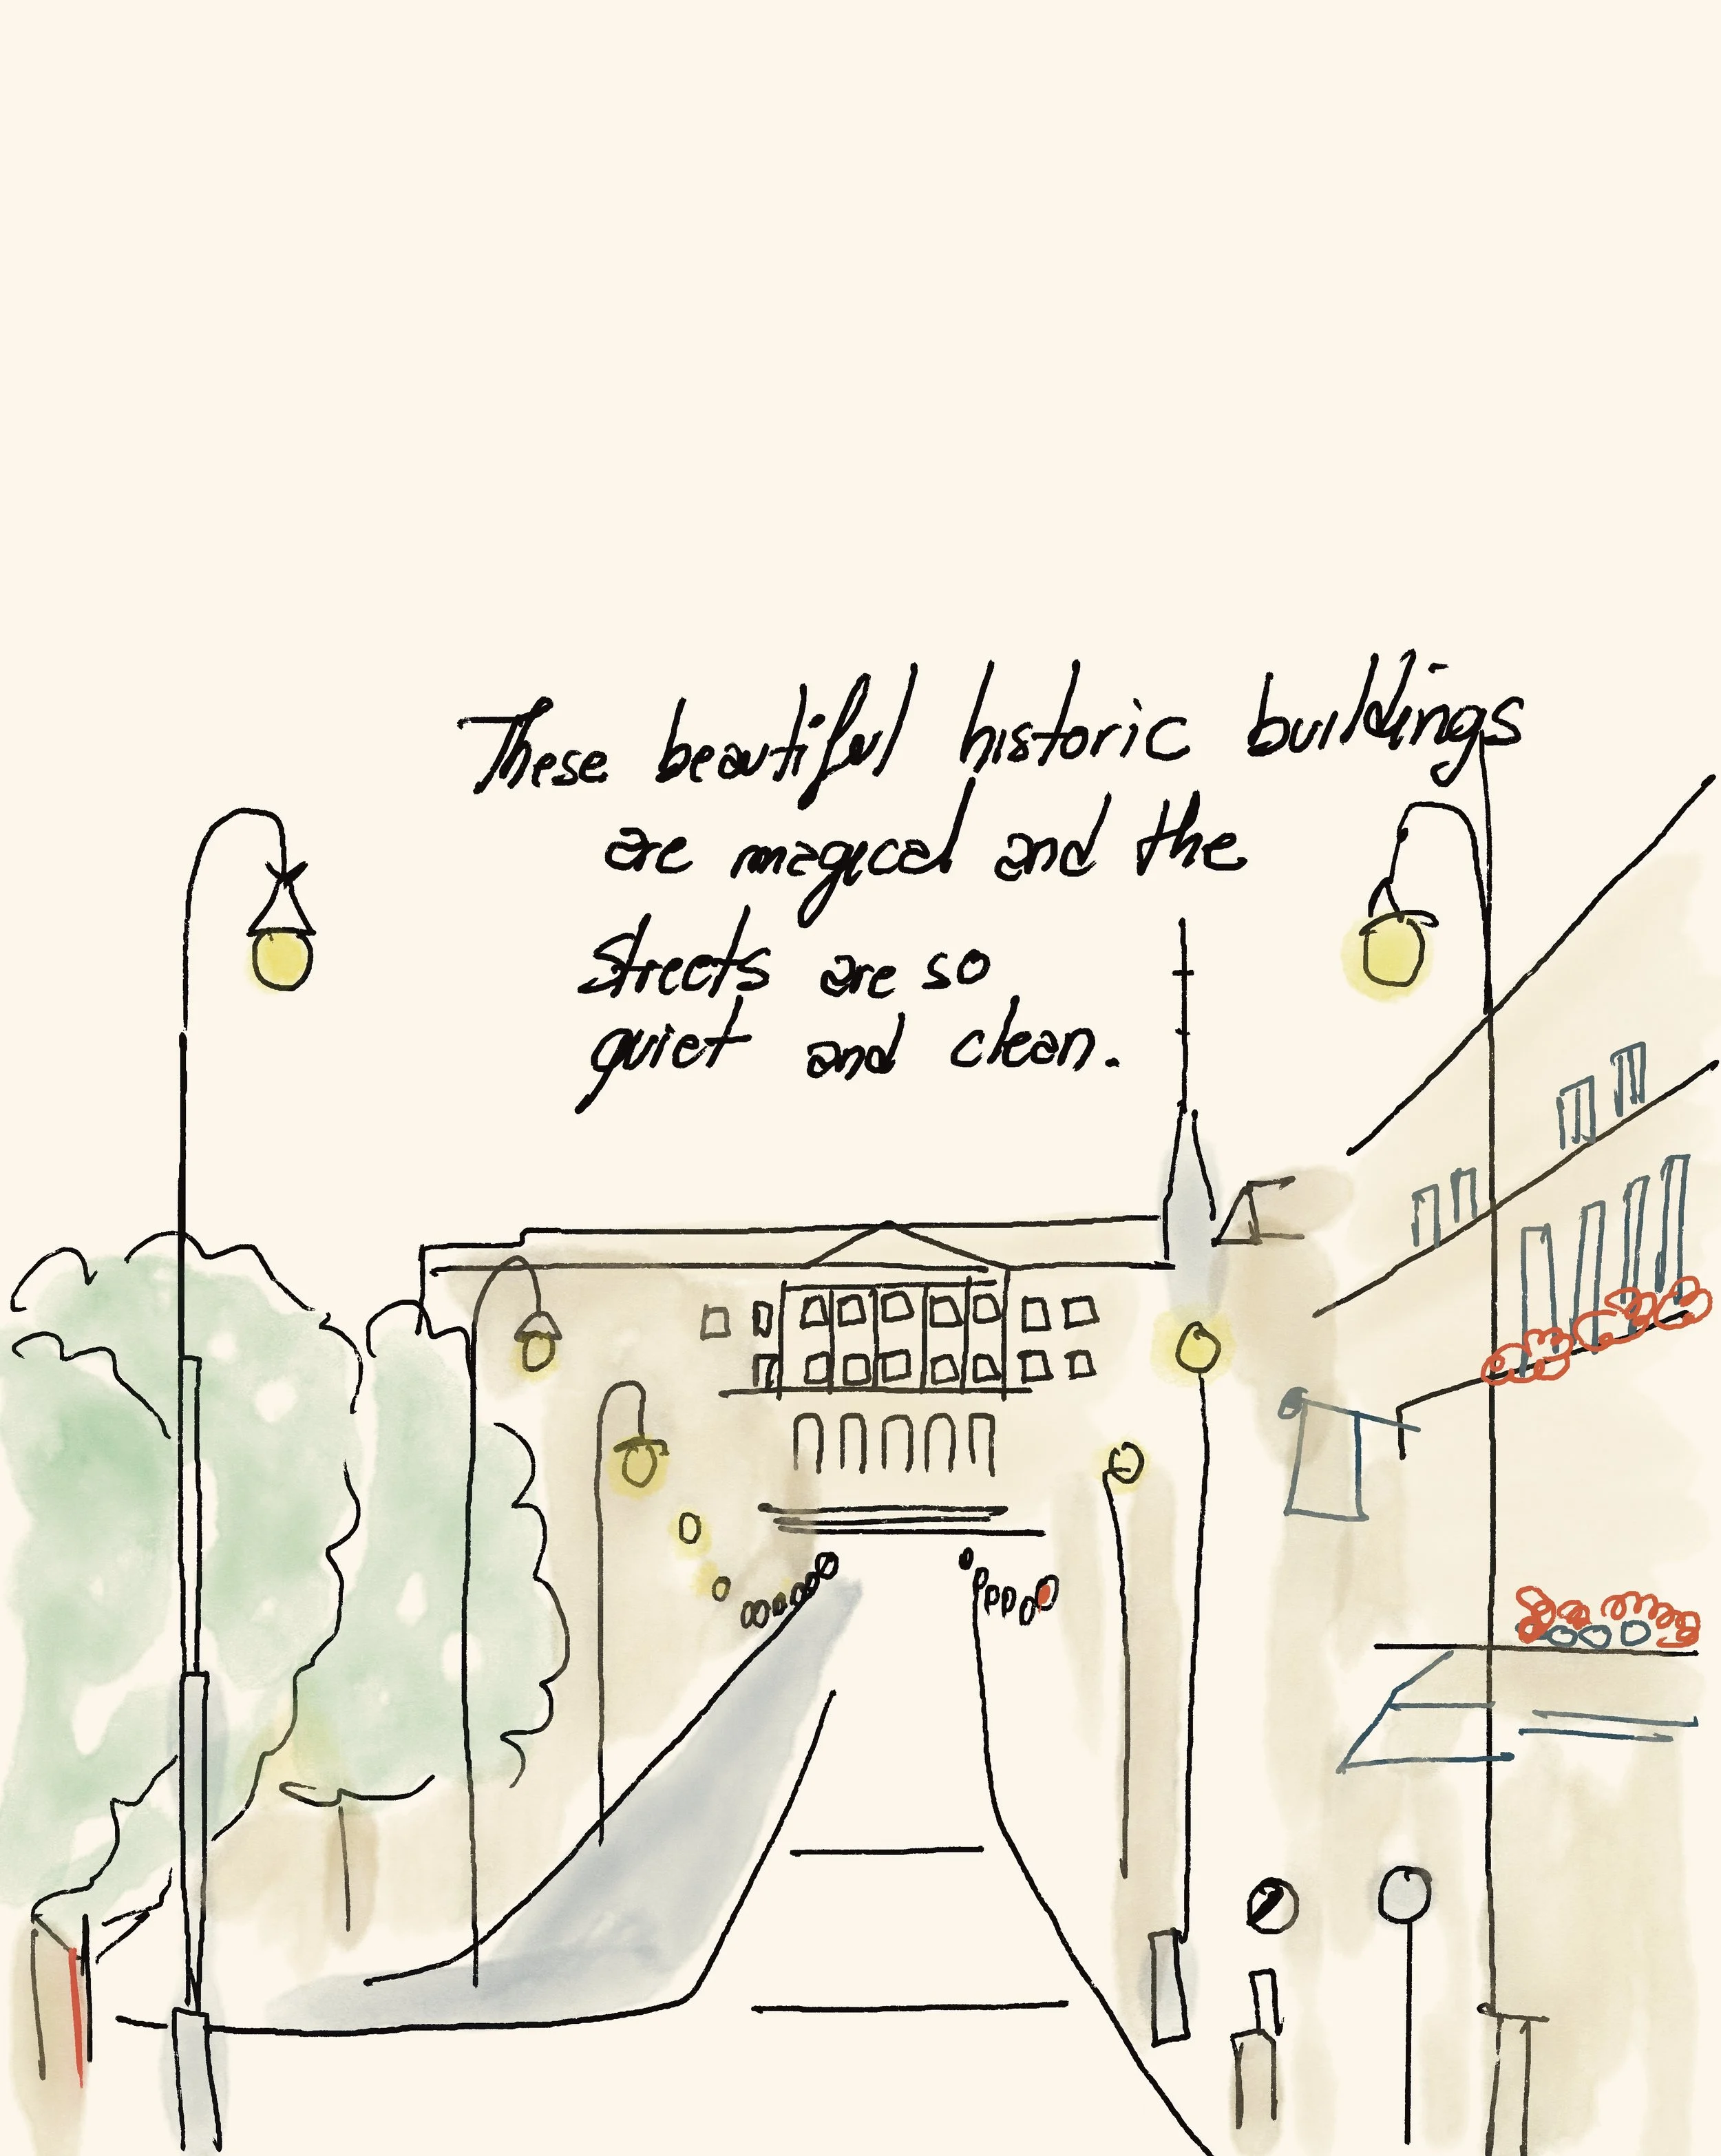 These beautiful historic buildings
are magical and the
streets are so
quiet and clean.